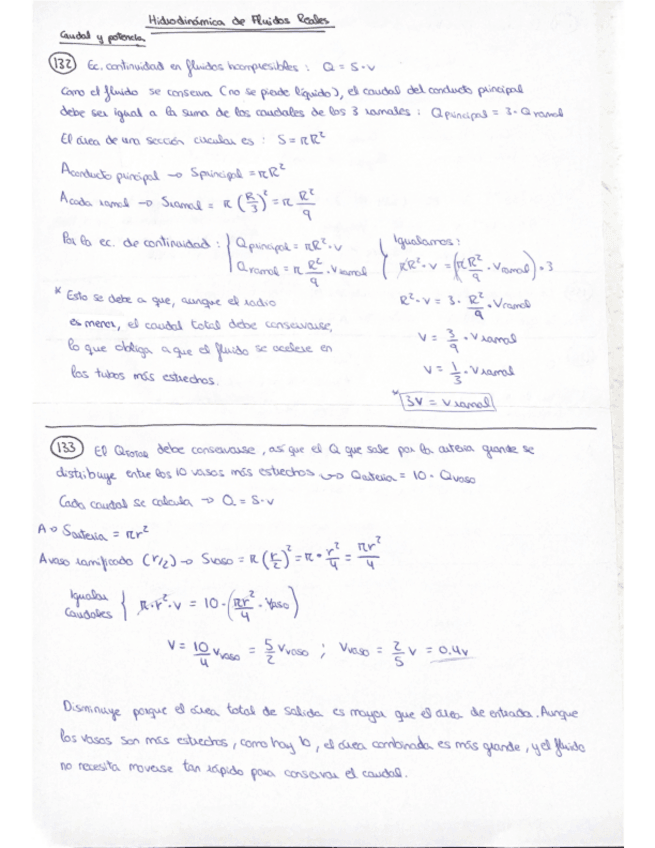 Hidrodinámica de Fluidos Reales
Caudal y potencia
132 Ec. continuidad en fluidos incompresibles : Q = S·v
Como el fluido se conserva (no se pierde líquido), el caudal del conducto principal
debe ser igual a la suma de los caudales de los 3 ramales : Qprincipal = 3·Qramal
El área de una sección circular es : S = πR²
Aconducto principal → Sprincipal = πR²
Acada ramal → Sramal = π (R/3)² = π R²/9
Por la ec. de continuidad : { Qprincipal = πR²·v
Qramal = π R²/9 · Vramal
Igualamos :
πR²·v = (π R²/9 · Vramal)·3
R²·v = 3· R²/9 · Vramal
V = 3/9 · Vramal
V = 1/3 · Vramal
* 3V = Vramal
* Esto se debe a que, aunque el radio
es menor, el caudal total debe conservarse,
lo que obliga a que el fluido se acelere en
los tubos más estrechos.
133 El QTOTAL debe conservarse, así que el Q que sale por la arteria grande se
distribuye entre los 10 vasos más estrechos → Qarteria = 10 · Qvaso
Cada caudal se calcula → Q = S·v
A → Sarteria = πr²
Avaso ramificado (r/2) → Svaso = π (r/2)² = π · r²/4 = πr²/4
Igualar
Caudales { π·r²·v = 10·(πr²/4 · Vvaso)
V = 10/4 Vvaso = 5/2 Vvaso ; Vvaso = 2/5 v = 0.4v
Disminuye porque el área total de salida es mayor que el área de entrada. Aunque
los vasos son más estrechos, como hay 10, el área combinada es más grande, y el fluido
no necesita moverse tan rápido para conservar el caudal.